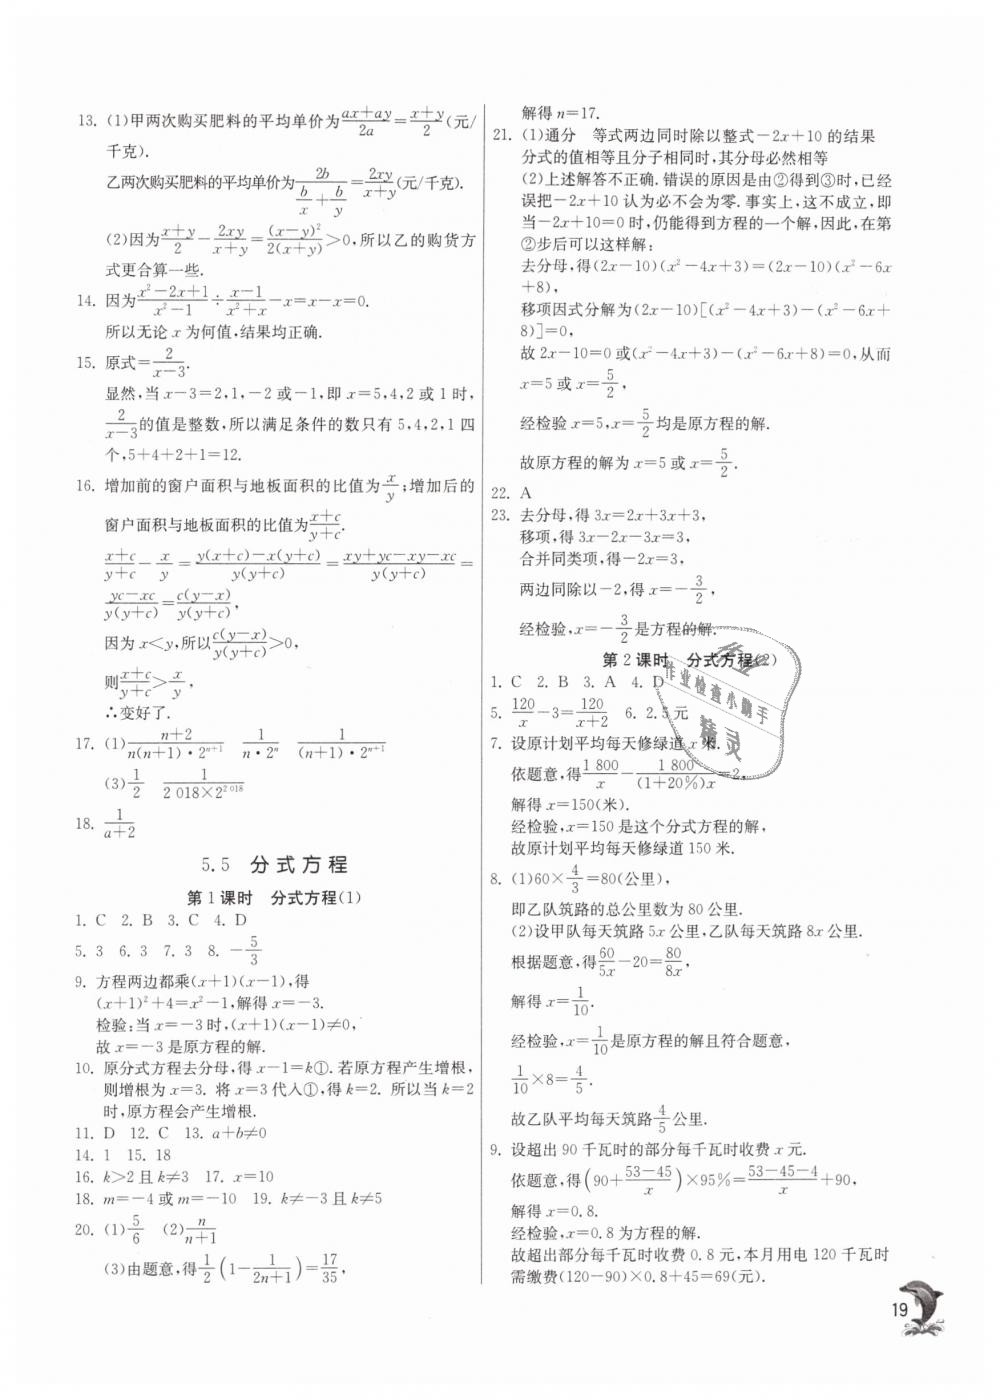 13. (1)甲两次购买肥料的平均单价为(ax+ay)/(2a)=(x+y)/2(元/
千克).
乙两次购买肥料的平均单价为2b/(b/x+b/y)=2xy/(x+y)(元/千克).
(2)因为(x+y)/2-2xy/(x+y)=(x-y)²/(2(x+y))>0,所以乙的购货方
式更合算一些.
14. 因为(x²-2x+1)/(x²-1)÷(x-1)/(x²+x)-x=x-x=0.
所以无论 x 为何值,结果均正确.
15. 原式=2/(x-3).
显然,当 x-3=2,1,-2 或-1,即 x=5,4,2 或 1 时,
2/(x-3)的值是整数,所以满足条件的数只有 5,4,2,1 四
个,5+4+2+1=12.
16. 增加前的窗户面积与地板面积的比值为x/y;增加后的
窗户面积与地板面积的比值为(x+c)/(y+c).
(x+c)/(y+c)-x/y=(y(x+c)-x(y+c))/(y(y+c))=(xy+yc-xy-xc)/(y(y+c))=
(yc-xc)/(y(y+c))=c(y-x)/(y(y+c)),
因为 x<y,所以c(y-x)/(y(y+c))>0,
则(x+c)/(y+c)>x/y,
∴变好了.
17. (1)(n+2)/(n(n+1)·2ⁿ⁺¹) 1/(n·2ⁿ) 1/((n+1)·2ⁿ⁺¹)
(3)1/2 1/(2 018×2²⁰¹⁸)
18. 1/(a+2)
5.5 分式方程
第 1 课时 分式方程(1)
1. C 2. B 3. C 4. D
5. 3 6. 3 7. 3 8. -5/3
9. 方程两边都乘(x+1)(x-1),得
(x+1)²+4=x²-1,解得 x=-3.
检验:当 x=-3 时,(x+1)(x-1)≠0,
故 x=-3 是原方程的解.
10. 原分式方程去分母,得 x-1=k①. 若原方程产生增根,
则增根为 x=3. 将 x=3 代入①,得 k=2. 所以当 k=2
时,原方程会产生增根.
11. D 12. C 13. a+b≠0
14. 1 15. 18
16. k>2 且 k≠3 17. x=10
18. m=-4 或 m=-10 19. k≠-3 且 k≠5
20. (1)5/6 (2)n/(n+1)
(3)由题意,得1/2(1-1/(2n+1))=17/35,
解得 n=17.
21. (1)通分 等式两边同时除以整式-2x+10 的结果
分式的值相等且分子相同时,其分母必然相等
(2)上述解答不正确. 错误的原因是由②得到③时,已经
误把-2x+10 认为必不会为零. 事实上,这不成立,即
当-2x+10=0 时,仍能得到方程的一个解,因此,在第
②步后可以这样解:
去分母,得(2x-10)(x²-4x+3)=(2x-10)(x²-6x
+8),
移项因式分解为(2x-10)[(x²-4x+3)-(x²-6x+
8)]=0,
故 2x-10=0 或(x²-4x+3)-(x²-6x+8)=0,从而
x=5 或 x=5/2,
经检验 x=5,x=5/2均是原方程的解.
故原方程的解为 x=5 或 x=5/2.
22. A
23. 去分母,得 3x=2x+3x+3,
移项,得 3x-2x-3x=3,
合并同类项,得-2x=3,
两边同除以-2,得 x=-3/2,
经检验,x=-3/2是方程的解.
第 2 课时 分式方程(2)
1. C 2. B 3. A 4. D
5. 120/x-3=120/(x+2) 6. 2.5 元
7. 设原计划平均每天修绿道 x 米.
依题意,得1 800/x-1 800/((1+20%)x)=2,
解得 x=150(米).
经检验,x=150 是这个分式方程的解,
故原计划平均每天修绿道 150 米.
8. (1)60×4/3=80(公里),
即乙队筑路的总公里数为 80 公里.
(2)设甲队每天筑路 5x 公里,乙队每天筑路 8x 公里.
根据题意,得60/5x-20=80/8x,
解得 x=1/10.
经检验,x=1/10是原方程的解且符合题意,
1/10×8=4/5.
故乙队平均每天筑路4/5公里.
9. 设超出 90 千瓦时的部分每千瓦时收费 x 元.
依题意,得(90+(53-45)/x)×95%=(53-45-4)/x+90,
解得 x=0.8.
经检验,x=0.8 为方程的解.
故超出部分每千瓦时收费 0.8 元,本月用电 120 千瓦时
需缴费(120-90)×0.8+45=69(元).
作业
作业检查小助手
精灵
19